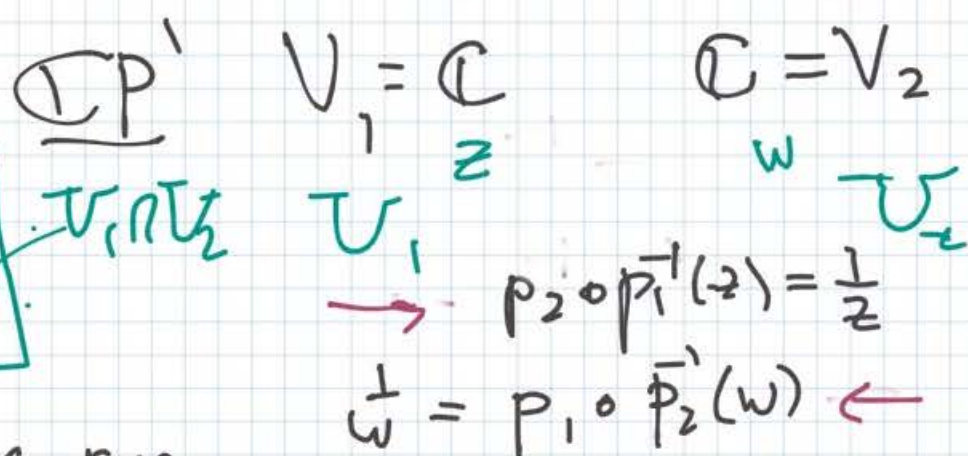 ℂP¹ V₁ = ℂ ℂ = V₂
z w
U₁∩U₂ U₁ U₂
→ p₂∘p₁⁻¹(z) = 1/z
1/w = p₁∘p₂⁻¹(w) ←